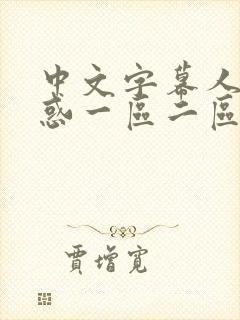 中文字幕人
惑一區二區
賈增寬